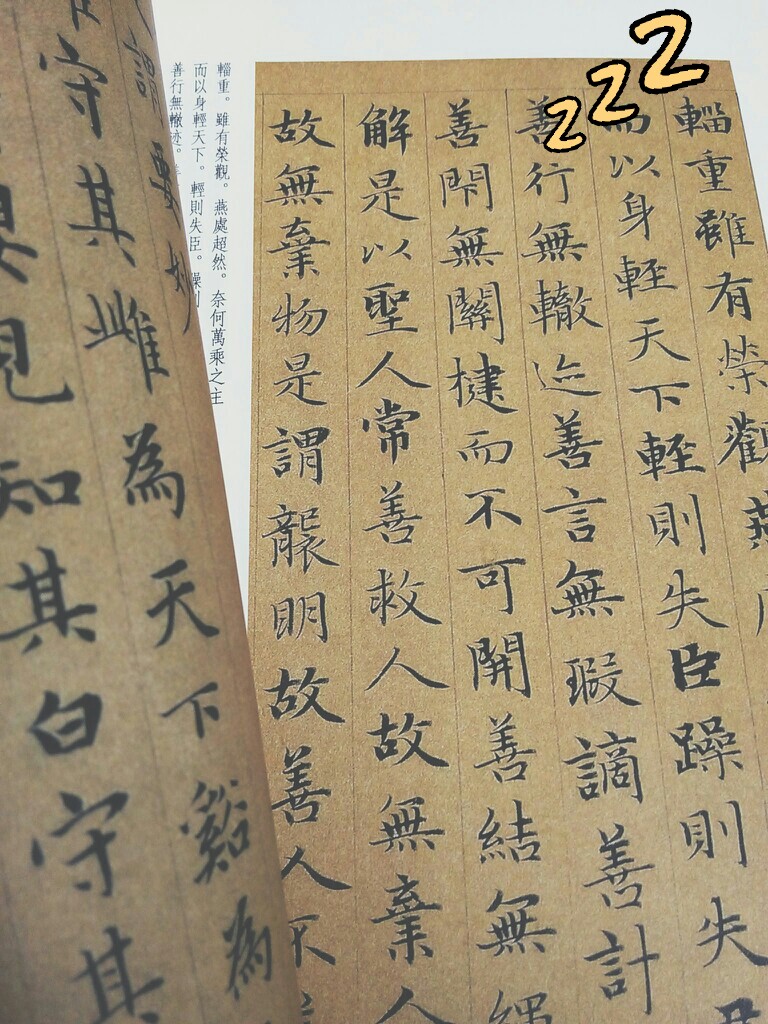 zzz
輜重雖有榮觀燕
而以身輕天下輕則失臣躁則失
善行無轍迹善言無瑕謫善計
善閇無關揵而不可開善結無繩
解是以聖人常善救人故無棄人
故無棄物是謂襲明故善人不
輜重。雖有榮觀。燕處超然。奈何萬乘之主
而以身輕天下。輕則失臣。躁則
善行無轍迹。
謂要妙
守其雌為天下谿為
見知其白守其